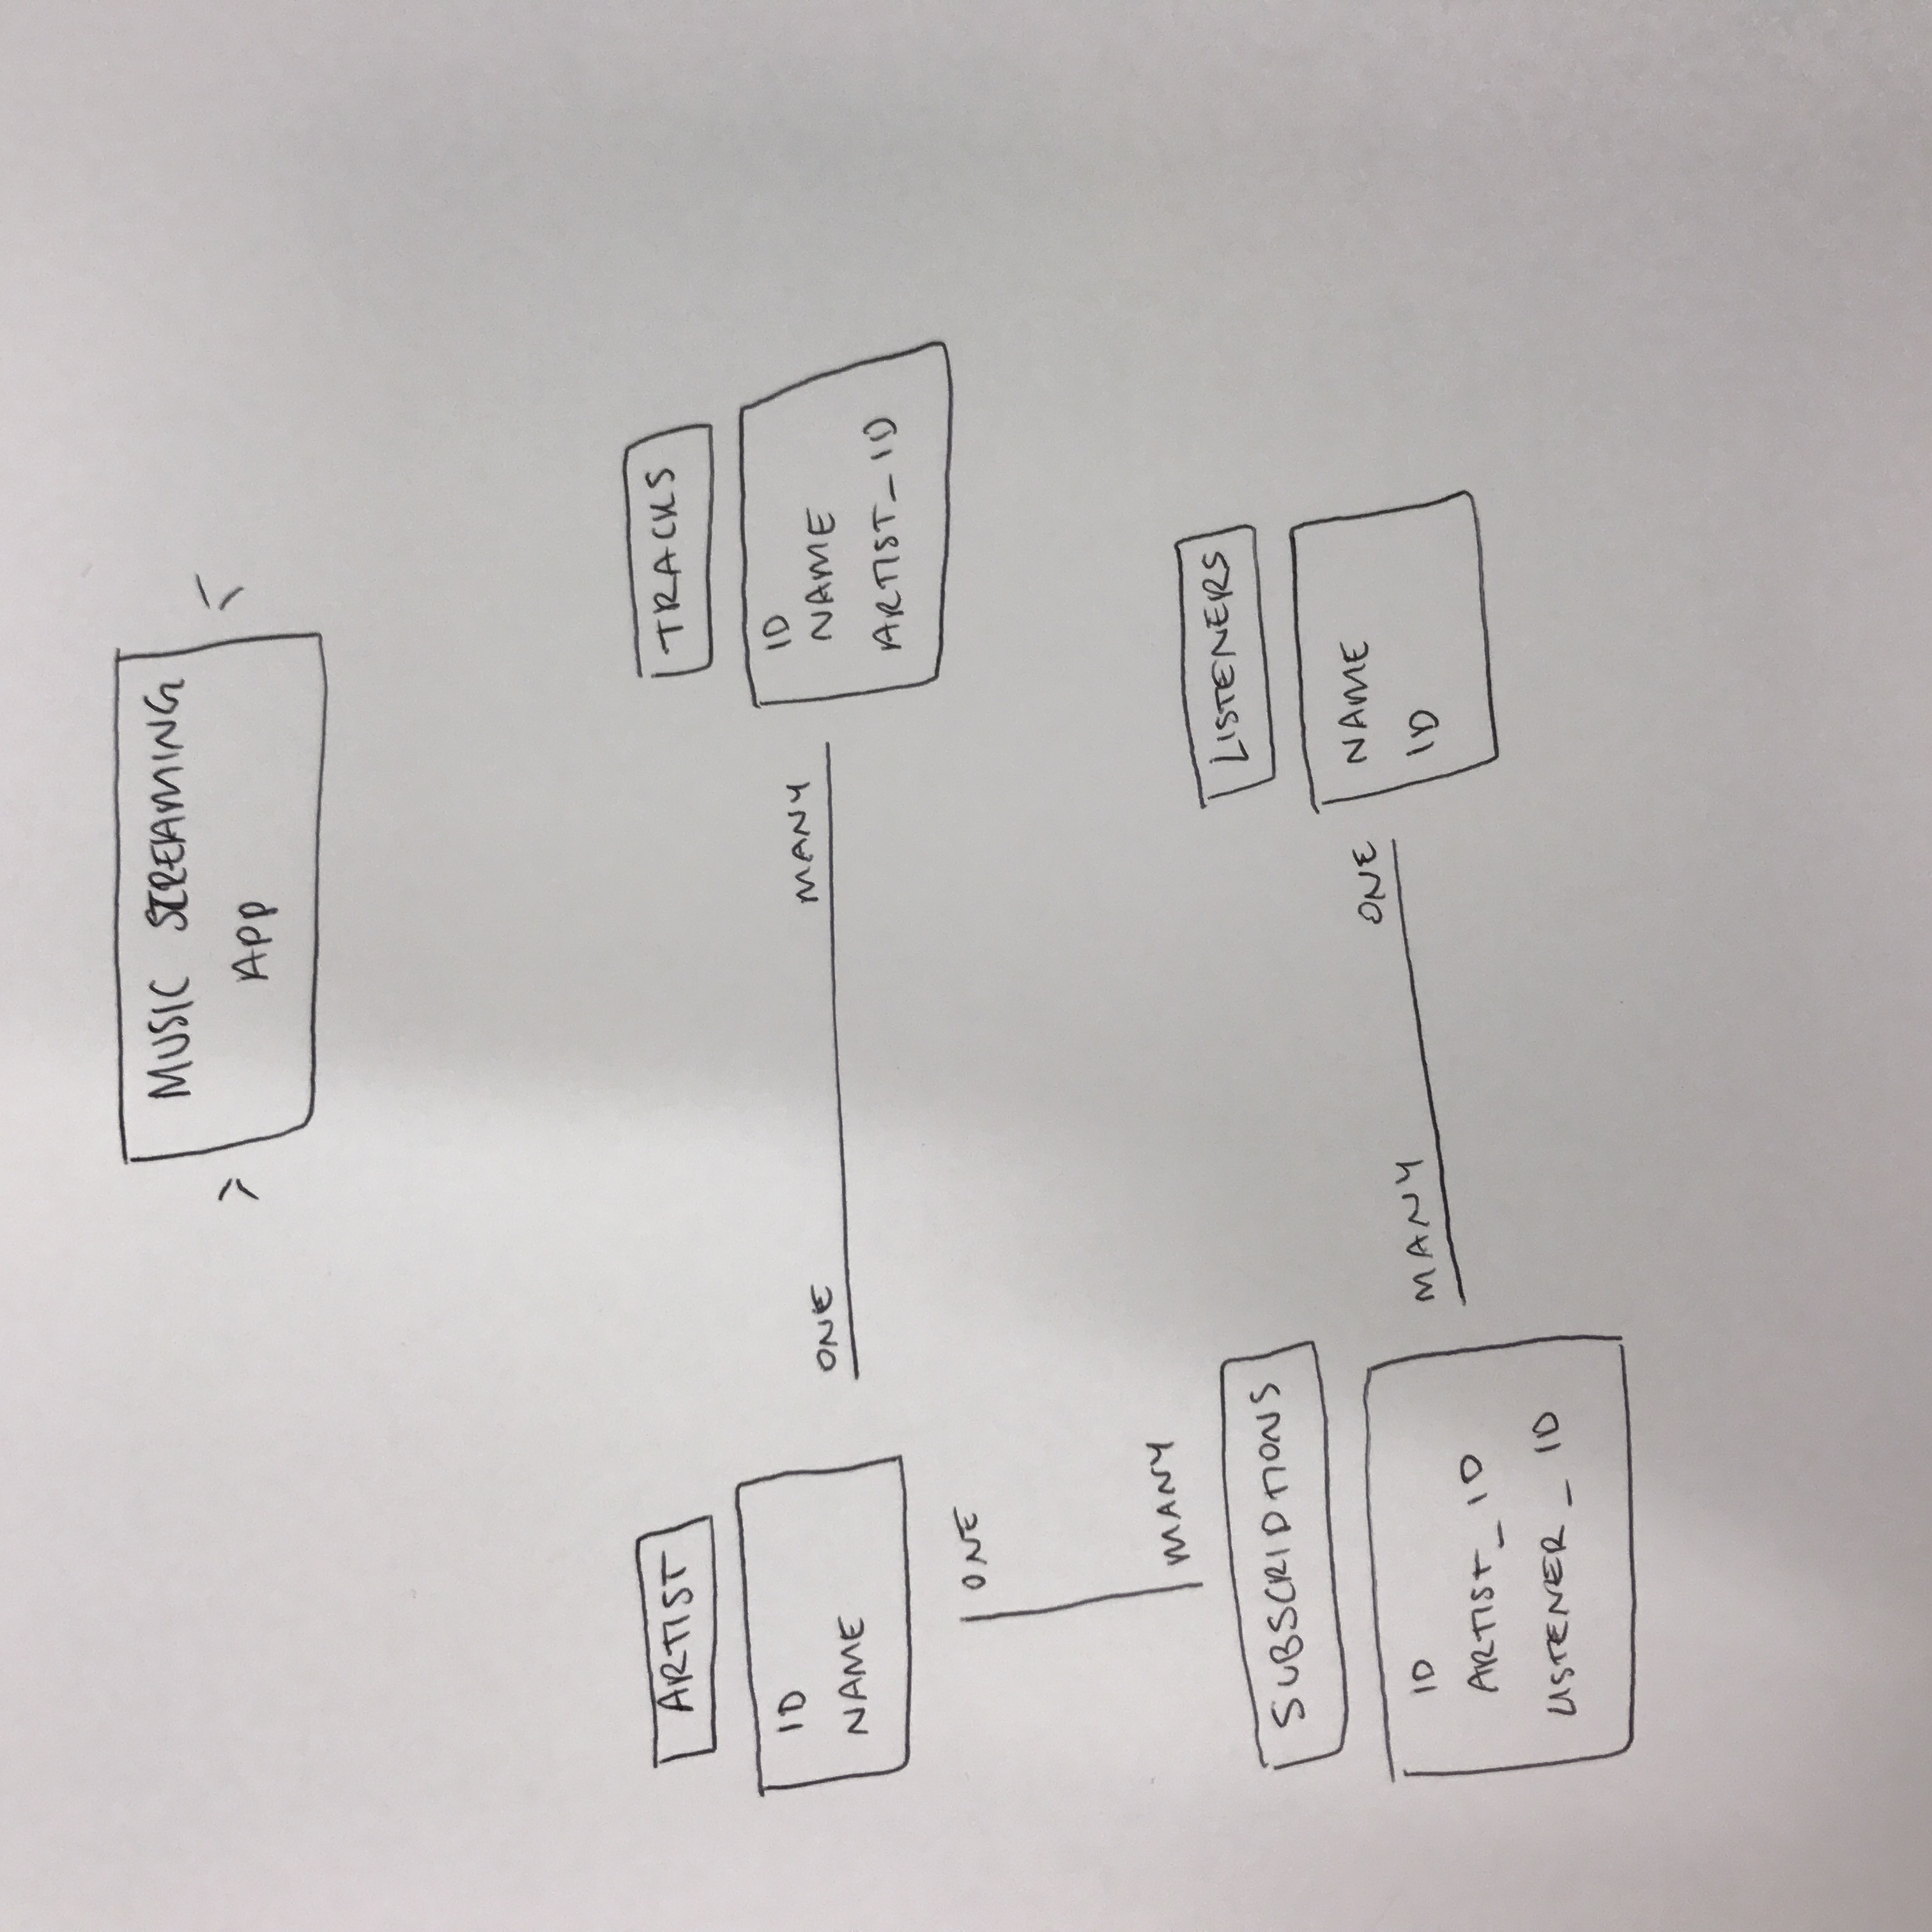 MUSIC STREAMING
APP
ARTIST
ID
NAME
ONE
MANY
TRACKS
ID
NAME
ARTIST_ID
ONE
MANY
SUBSCRIPTIONS
ID
ARTIST_ID
LISTENER_ID
MANY
ONE
LISTENERS
NAME
ID